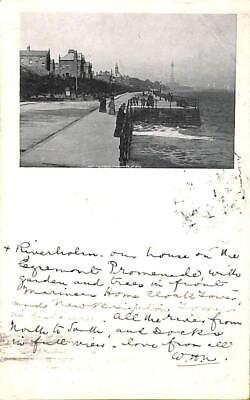 + Riverholm. our house on the
Egremont Promenade, with
garden and trees in front
Mariners Home Clock Tower
and New Brighton Tower
in
All the river from
North to South, and Docks
in full view. love from all